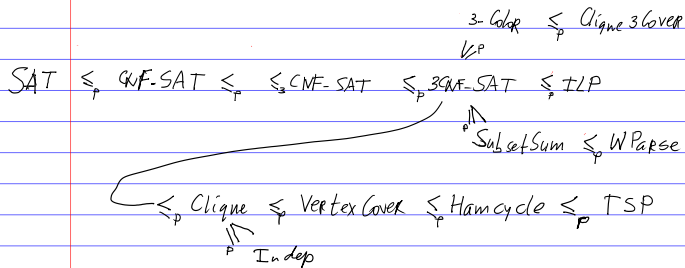 3-Color ≤p Clique3Cover
≥p
SAT ≤p CNF-SAT ≤p ≤3CNF-SAT ≤p 3CNF-SAT ≤p ILP
p≥
SubsetSum ≤p WParse
≤p Clique ≤p VertexCover ≤p Hamcycle ≤p TSP
p≥
Indep